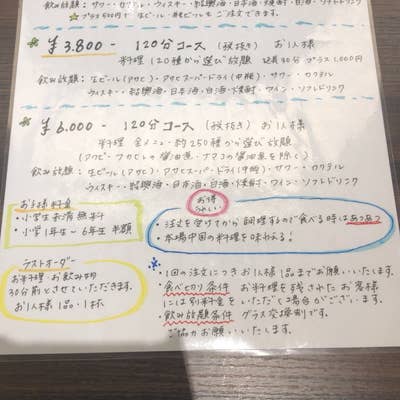 飲み放題: サワー・カクテル・ウィスキー・紹興酒・日本酒・焼酎・白酒・ソフトドリンク
☆プラス500円で 生ビール・瓶ビールもご注文できます。
¥3.800- 120分コース (税抜き) お1人様
料理 120種から選び放題 延長30分 プラス1,000円
飲み放題: 生ビール(アサヒ)・アサヒスーパードライ(中瓶)・サワー・カクテル
ウィスキー・紹興酒・日本酒・白酒・焼酎・ワイン・ソフトドリンク
¥6.000- 120分コース (税抜き) お1人様
料理 全メニュー・約250種から選び放題
(アワビ・フカヒレの醤油煮・ナマコの醤油煮を除く)
飲み放題: 生ビール(アサヒ)・アサヒスーパードライ(中瓶)・サワー・カクテル
ウィスキー・紹興酒・日本酒・白酒・焼酎・ワイン・ソフトドリンク
お子様料金
・小学生未満 無料
・小学1年生〜6年生 半額
お得
うれしい
・注文を受けてから調理するので食べる時はあつあつ
・本場中国の料理を味わえる!
ラストオーダー
お料理・お飲み物
30分前とさせていただきます。
お1人様1品・1杯
・1回の注文につきお1人様1品までお願いいたします。
・食べ切り条件 お料理を残されたお客様
には別料金をいただく場合がございます。
・飲み放題条件 グラス交換制です。
ご協力お願いいたします。